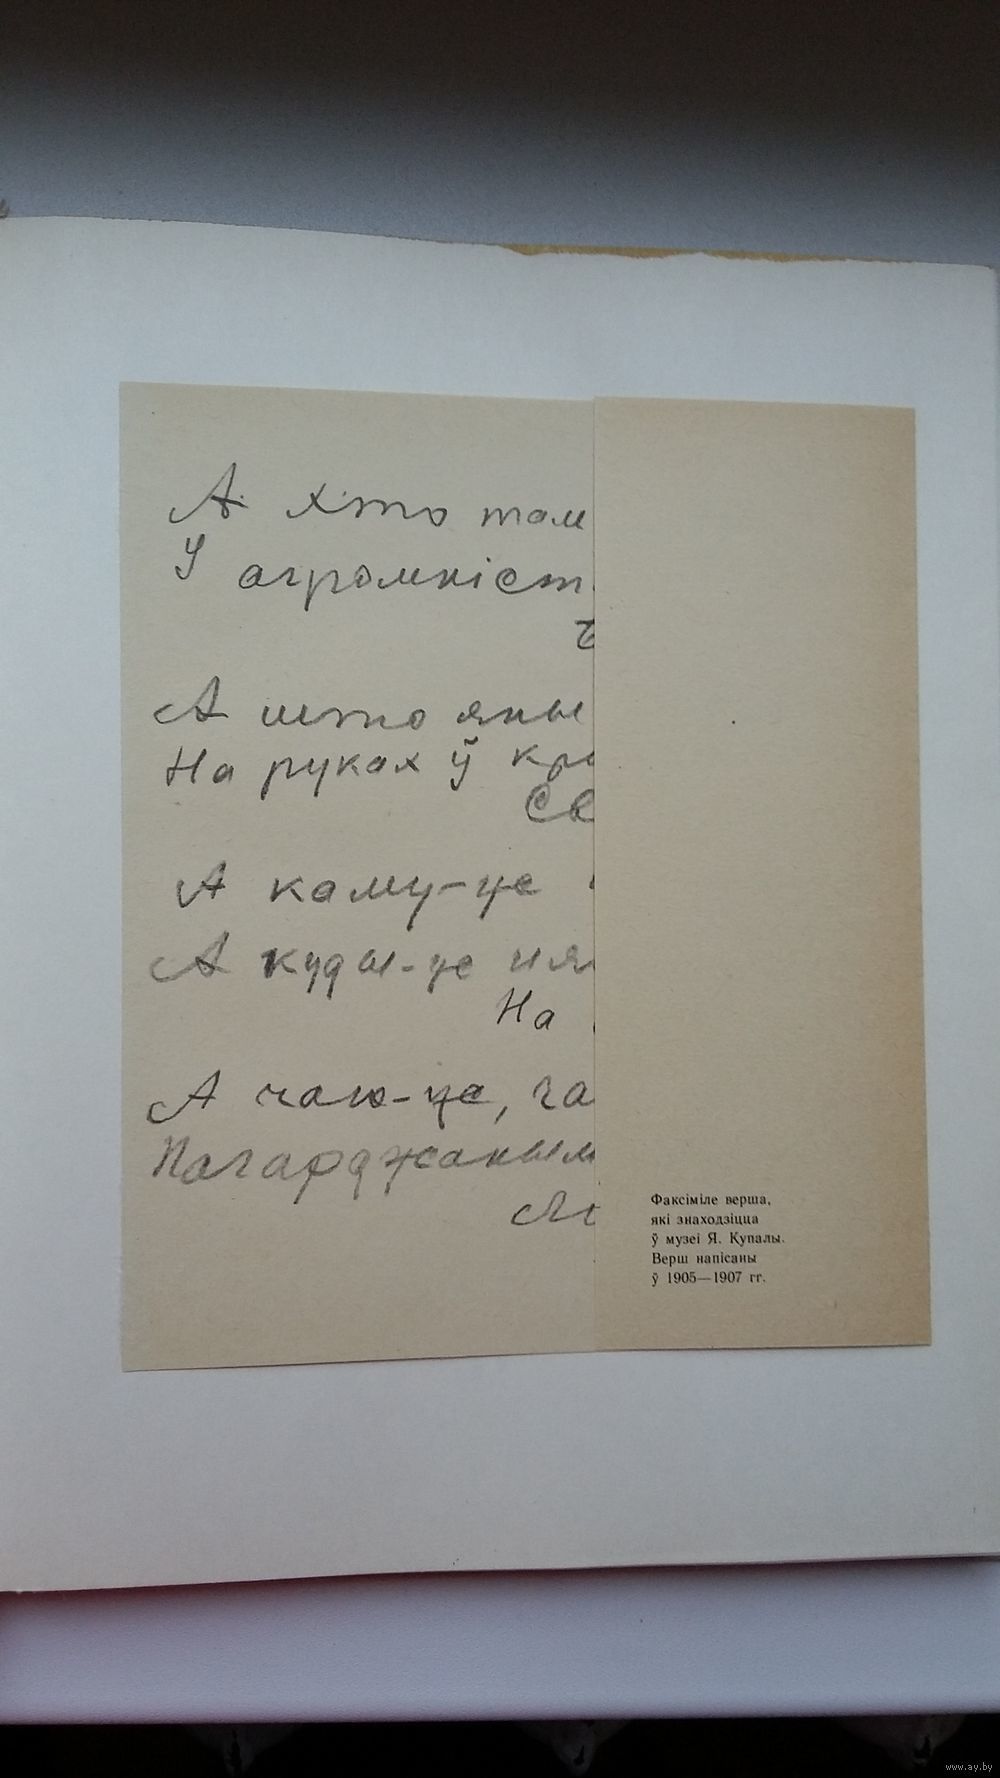 А хто там
У агромніст
А што яны
На руках ў кры
Св
А каму-це
А куды-це ня
На
А чаго-це, ча
Пагарджаным
Факсіміле верша,
які знаходзіцца
ў музеі Я. Купалы.
Верш напісаны
ў 1905—1907 гг.
www.ay.by